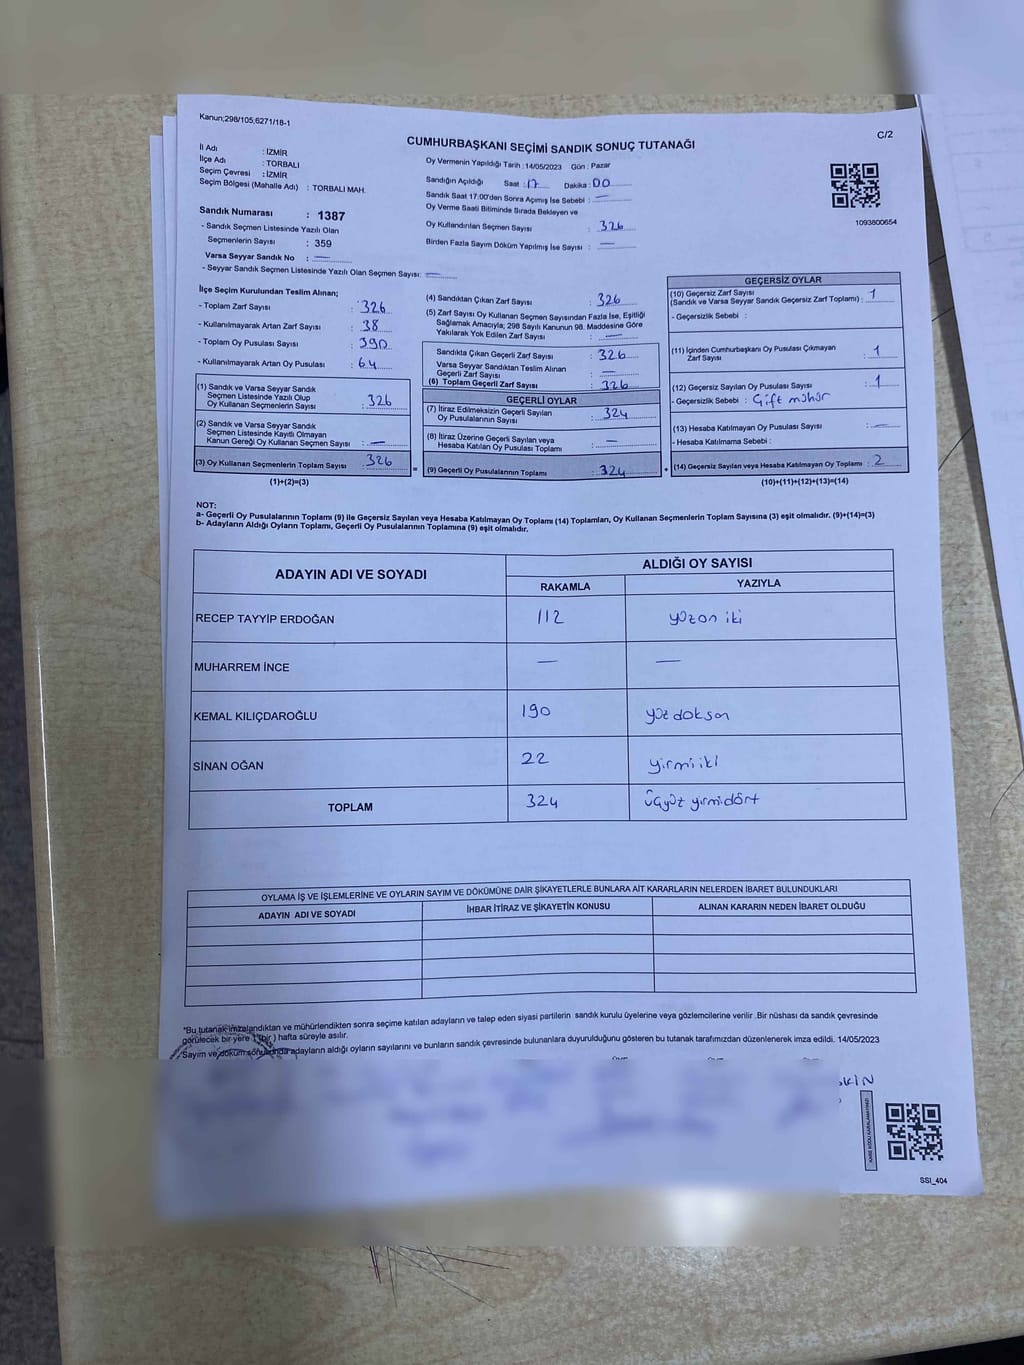 Kanun;298/105;6271/18-1
C/2
CUMHURBAŞKANI SEÇİMİ SANDIK SONUÇ TUTANAĞI
İl Adı : İZMİR
İlçe Adı : TORBALI
Seçim Çevresi : İZMİR
Seçim Bölgesi (Mahalle Adı) : TORBALI MAH.
Sandık Numarası : 1387
- Sandık Seçmen Listesinde Yazılı Olan
Seçmenlerin Sayısı : 359
Varsa Seyyar Sandık No : —
- Seyyar Sandık Seçmen Listesinde Yazılı Olan Seçmen Sayısı: —
Oy Vermenin Yapıldığı Tarih :14/05/2023 Gün : Pazar
Sandığın Açıldığı Saat : 17 Dakika : 00
Sandık Saat 17:00'dan Sonra Açmış İse Sebebi : —
Oy Verme Saati Bitiminde Sırada Bekleyen ve
Oy Kullandırılan Seçmen Sayısı : 326
Birden Fazla Sayım Döküm Yapılmış İse Sayısı : —
1093800654
İlçe Seçim Kurulundan Teslim Alınan;
- Toplam Zarf Sayısı : 326
- Kullanılmayarak Artan Zarf Sayısı : 38
- Toplam Oy Pusulası Sayısı : 390
- Kullanılmayarak Artan Oy Pusulası : 64
(1) Sandık ve Varsa Seyyar Sandık
Seçmen Listesinde Yazılı Olup
Oy Kullanan Seçmenlerin Sayısı : 326
(2) Sandık ve Varsa Seyyar Sandık
Seçmen Listesinde Kayıtlı Olmayan
Kanun Gereği Oy Kullanan Seçmen Sayısı : —
(3) Oy Kullanan Seçmenlerin Toplam Sayısı : 326
(1)+(2)=(3)
(4) Sandıktan Çıkan Zarf Sayısı : 326
(5) Zarf Sayısı Oy Kullanan Seçmen Sayısından Fazla İse, Eşitliği
Sağlamak Amacıyla; 298 Sayılı Kanunun 98. Maddesine Göre
Yakılarak Yok Edilen Zarf Sayısı : —
Sandıkta Çıkan Geçerli Zarf Sayısı : 326
Varsa Seyyar Sandıktan Teslim Alınan
Geçerli Zarf Sayısı : —
(6) Toplam Geçerli Zarf Sayısı : 326
GEÇERLİ OYLAR
(7) İtiraz Edilmeksizin Geçerli Sayılan
Oy Pusulalarının Sayısı : 324
(8) İtiraz Üzerine Geçerli Sayılan veya
Hesaba Katılan Oy Pusulası Toplamı : —
= (9) Geçerli Oy Pusulalarının Toplamı : 324
GEÇERSİZ OYLAR
(10) Geçersiz Zarf Sayısı
(Sandık ve Varsa Seyyar Sandık Geçersiz Zarf Toplamı) : 1
- Geçersizlik Sebebi :
(11) İçinden Cumhurbaşkanı Oy Pusulası Çıkmayan
Zarf Sayısı : 1
(12) Geçersiz Sayılan Oy Pusulası Sayısı : 1
- Geçersizlik Sebebi : Çift mühür
(13) Hesaba Katılmayan Oy Pusulası Sayısı : —
- Hesaba Katılmama Sebebi :
+ (14) Geçersiz Sayılan veya Hesaba Katılmayan Oy Toplamı : 2
(10)+(11)+(12)+(13)=(14)
NOT:
a- Geçerli Oy Pusulalarının Toplamı (9) ile Geçersiz Sayılan veya Hesaba Katılmayan Oy Toplamı (14) Toplamları, Oy Kullanan Seçmenlerin Toplam Sayısına (3) eşit olmalıdır. (9)+(14)=(3)
b- Adayların Aldığı Oyların Toplamı, Geçerli Oy Pusulalarının Toplamına (9) eşit olmalıdır.
ADAYIN ADI VE SOYADI ALDIĞI OY SAYISI
RAKAMLA YAZIYLA
RECEP TAYYİP ERDOĞAN 112 yüzon iki
MUHARREM İNCE — —
KEMAL KILIÇDAROĞLU 190 yüz doksan
SİNAN OĞAN 22 yirmi iki
TOPLAM 324 üçyüz yirmidört
OYLAMA İŞ VE İŞLEMLERİNE VE OYLARIN SAYIM VE DÖKÜMÜNE DAİR ŞİKAYETLERLE BUNLARA AİT KARARLARIN NELERDEN İBARET BULUNDUKLARI
ADAYIN ADI VE SOYADI İHBAR İTİRAZ VE ŞİKAYETİN KONUSU ALINAN KARARIN NEDEN İBARET OLDUĞU
*Bu tutanak imzalandıktan ve mühürlendikten sonra seçime katılan adayların ve talep eden siyasi partilerin sandık kurulu üyelerine veya gözlemcilerine verilir .Bir nüshası da sandık çevresinde
görülecek bir yere 1 (bir) hafta süreyle asılır.
Sayım ve döküm sonucunda adayların aldığı oyların sayılarını ve bunların sandık çevresinde bulunanlara duyurulduğunu gösteren bu tutanak tarafımızdan düzenlenerek imza edildi. 14/05/2023
SSI_404